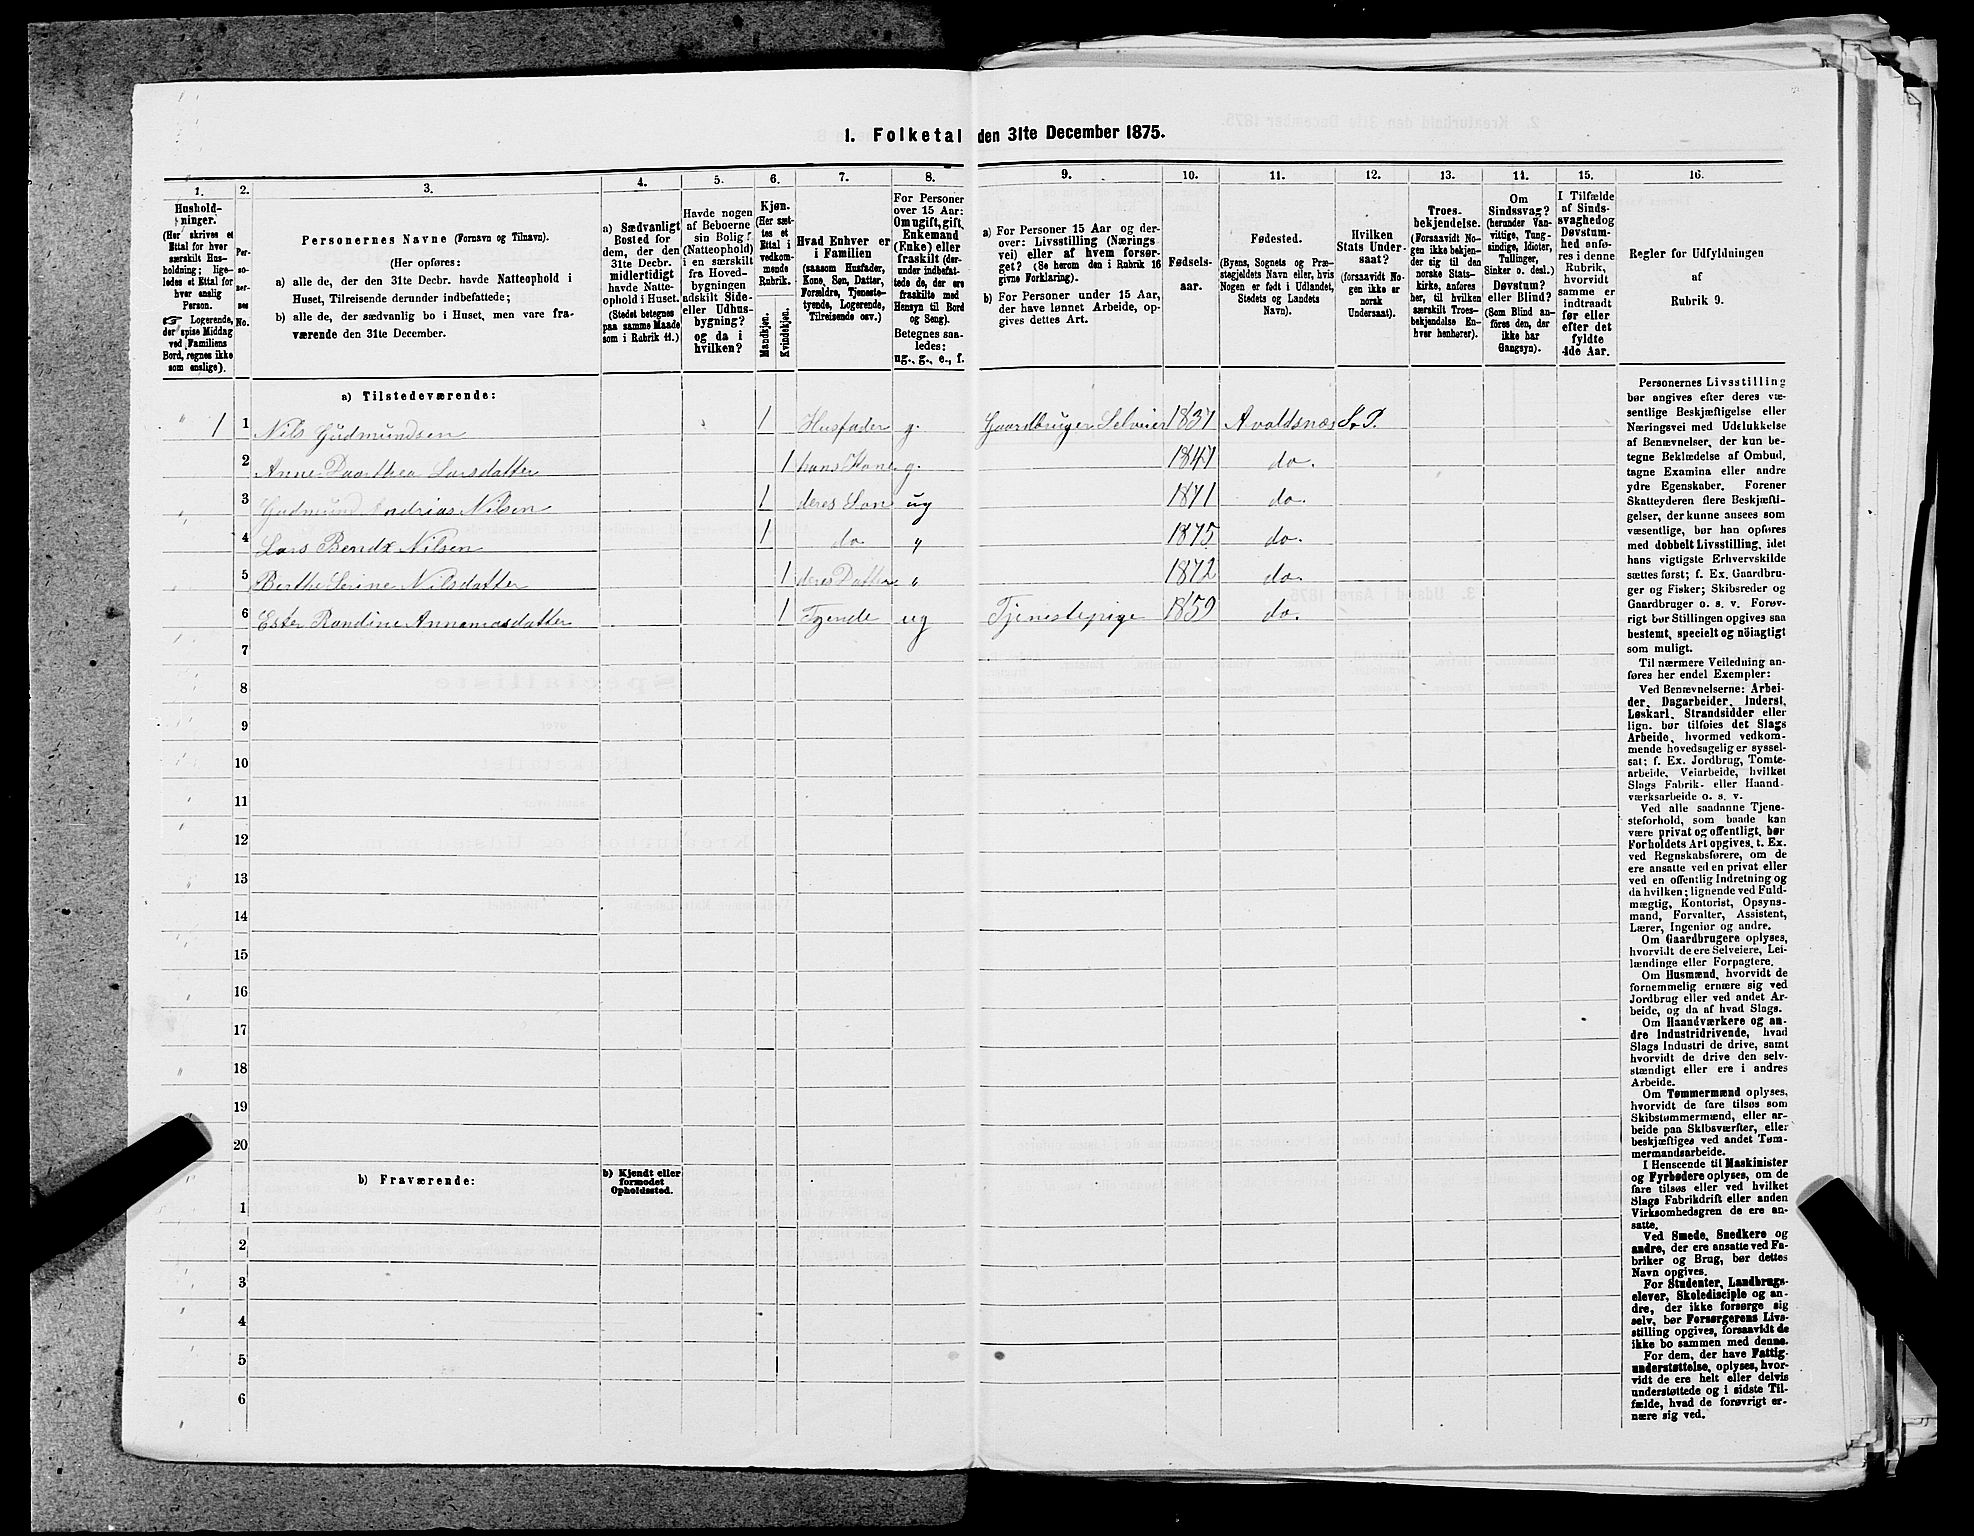 1. Folketal den 31te December 1875.
1. 2. 3. 4. 5. 6. 7. 8. 9. 10. 11. 12. 13. 14. 15. 16.
Hushold-
ninger.
(Her skrives et
Ettal for hver
særskilt Hus-
holdning; lige-
ledes et Ettal for
hver enslig
Person.
☞ Logerende,
der spise Middag
ved Familiens
Bord, regnes ikke
som enslige).
Per-
so-
ner-
nes
No.
Personernes Navne (Fornavn og Tilnavn).
(Her opføres:
a) alle de, der den 31te Decbr. havde Natteophold i
Huset, Tilreisende derunder indbefattede;
b) alle de, der sædvanlig bo i Huset, men vare fra-
værende den 31te December.
a) Sædvanligt
Bosted for
dem, der den
31te Decbr.
midlertidigt
havde Natte-
ophold i Huset.
(Stedet betegnes
paa samme Maade
som i Rubrik 11.)
Havde nogen
af Beboerne
sin Bolig
(Natteophold)
i en særskilt
fra Hoved-
bygningen
adskilt Side-
eller Udhus-
bygning?
og da i
hvilken?
Kjøn.
(Her sæt-
tes et
Ettal i
vedkom-
mende
Rubrik.
Mandkjøn.
Kvindekjøn.
Hvad Enhver er
i Familien
(saasom Husfader,
Kone, Søn, Datter,
Forældre, Tjeneste-
tyende, Logerende,
Tilreisende osv.)
For Personer
over 15 Aar:
Om ugift, gift,
Enkemand
(Enke) eller
fraskilt (der-
under indbefat-
tede de, der ere
fraskilte med
Hensyn til Bord
og Seng).
Betegnes saa-
ledes:
ug., g., e., f.
a) For Personer 15 Aar og der-
over: Livsstilling (Nærings
vei) eller af hvem forsør-
get? (Se herom den i Rubrik 16
givne Forklaring).
b) For Personer under 15 Aar,
der have lønnet Arbeide, op-
gives dettes Art.
Fødsels-
aar.
Fødested.
(Byens, Sognets og Præ-
stegjeldets Navn eller, hvis
Nogen er født i Udlandet,
Stedets og Landets
Navn).
Hvilken
Stats Under-
saat?
(forsaavidt No-
gen ikke er
norsk
Undersaat).
Troes-
bekjendelse.
(Forsaavidt No-
gen ikke bekjen-
der sig til den
norske Stats-
kirke, anføres
her, til hvilken
særskilt Troes-
bekjendelse En-
hver henhører).
Om
Sindssvag?
(herunder Van-
vittige, Tung-
sindige, Idioter,
Tullinger,
Sinker o. desl.)
Døvstum?
eller Blind?
(Som Blind an-
føres den, der
ikke har
Gangsyn).
I Tilfælde
af Sinds-
svaghed og
Døvstum-
hed anfø-
res i denne
Rubrik,
hvorvidt
samme er
indtraadt
før eller
efter det
fyldte
4de Aar.
Regler for Udfyldningen
af
Rubrik 9.
a) Tilstedeværende:
1 1 Nils Gudmundsen 1 Husfader g. Gaardbruger Selveier 1837 Avaldsnæs S. P.
2 Anne Daarthea Larsdatter 1 hans Kone g. 1847 do.
3 Gudmund Andrias Nilsen 1 deres Søn ug 1871 do.
4 Lars Bendx Nilsen 1 do " 1875 do.
5 Berthe Serine Nilsdatter 1 deres Datter " 1872 do.
6 Ester Randine Annamasdatter 1 Tyende ug Tjenestepige 1859 do.
7
8
9
10
11
12
13
14
15
16
17
18
19
20
b) Fraværende:
b) Kjendt eller
formodet
Opholdssted.
1
2
3
4
5
6
Personernes Livsstilling
bør angives efter deres væ-
sentlige Beskjæftigelse eller
Næringsvei med Udelukkelse
af Benævnelser, der kun be-
tegne Beklædelse af Ombud,
tagne Examina eller andre
ydre Egenskaber. Forener
Skatteyderen flere Beskjæfti-
gelser, der kunne ansees som
væsentlige, bør han opføres
med dobbelt Livsstilling, idet
hans vigtigste Erhvervskilde
sættes først; f. Ex. Gaardbru-
ger og Fisker; Skibsreder og
Gaardbruger o. s. v. Forøv-
rigt bør Stillingen opgives saa
bestemt, specielt og nöiagtigt
som muligt.
Til nærmere Veiledning an-
føres her endel Exempler:
Ved Benævnelserne: Arbei-
der, Dagarbeider, Inderst,
Løskarl, Strandsidder eller
lign. bør tilføies det Slags
Arbeide, hvormed vedkom-
mende hovedsagelig er syssel-
sat; f. Ex. Jordbrug, Tomte-
arbeide, Veiarbeide, hvilket
Slags Fabrik- eller Haand-
værksarbeide o. s. v.
Ved alle saadanne Tjene-
steforhold, som baade kan
være privat og offentligt, bør
Forholdets Art opgives, t. Ex.
ved Regnskabsførere, om de
ere ansatte ved en privat eller
ved en offentlig Indretning og
da hvilken; lignende ved Fuld-
mægtig, Kontorist, Opsyns-
mand, Forvalter, Assistent,
Lærer, Ingeniør og andre.
Om Gaardbrugere oplyses,
hvorvidt de ere Selveiere, Lei-
lændinge eller Forpagtere.
Om Husmænd, hvorvidt de
fornemmelig ernære sig ved
Jordbrug eller ved andet Ar-
beide, og da af hvad Slags.
Om Haandværkere og an-
dre Industridrivende, hvad
Slags Industri de drive, samt
hvorvidt de drive den selv-
stændigt eller ere i andres
Arbeide.
Om Tømmermænd oplyses,
hvorvidt de fare tilsøs som
Skibstømmermænd, eller ar-
beide paa Skibsværfter, eller
beskjæftiges ved andet Tøm-
mermandsarbeide.
I Henseende til Maskinister
og Fyrbødere oplyses, om de
fare tilsøs eller ved hvilket
Slags Fabrikdrift eller anden
Virksomhedsgren de ere an-
satte.
Ved Smede, Snedkere og
andre, der ere ansatte ved Fa-
briker og Brug, bør dettes
Navn opgives.
For Studenter, Landbrugs-
elever, Skoledisciple og an-
dre, der ikke forsørge sig
selv, bør Forsørgerens Livs-
stilling opgives, forsaavidt de
ikke bo sammen med denne.
For dem, der have Fattig-
understøttelse, oplyses, hvor-
vidt de ere helt eller delvis
understøttede og i sidste Til-
fælde, hvad de forøvrigt er-
nære sig ved.